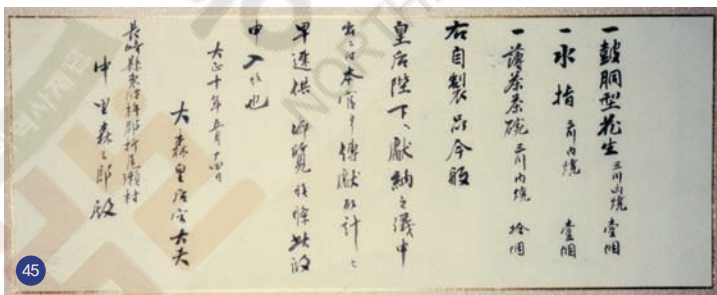 一鼓胴型花生 三川内焼 壹個
一水指 三川内焼 壹個
一薄茶茶碗 三川内焼 拾個
右自製品今般
皇后陛下ヘ献納之儀申
出ニ付本官ヨリ傳献取計ヒ
早速供御覧候條此段
申入候也
大正十年五月十四日
大森皇后宮大夫
長崎縣東彼杵郡折尾瀬村
中里森三郎殿
45